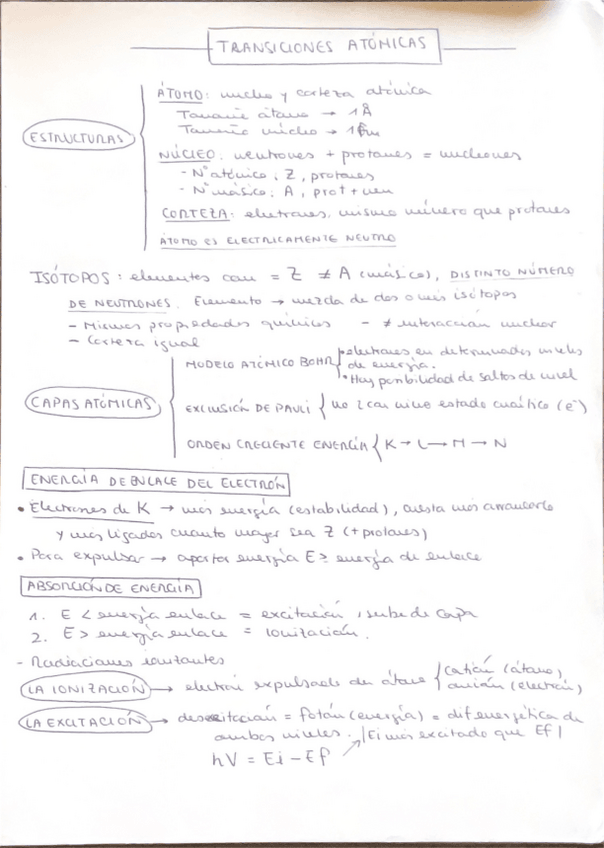 TRANSICIONES ATÓMICAS
ESTRUCTURAS
ÁTOMO: nucleo y corteza atómica
Tamaño átomo → 1Å
Tamaño núcleo → 1fm
NÚCLEO: neutrones + protones = nucleones
- Nº atómico: Z, protones
- Nº másico: A, prot + neu
CORTEZA: electrones, mismo número que protones
ÁTOMO ES ELECTRICAMENTE NEUTRO
ISÓTOPOS: elementos con = Z ≠ A (másico), DISTINTO NÚMERO
DE NEUTRONES. Elemento → mezcla de dos o más isótopos
- Mismas propiedades químicas - ≠ interacción nuclear
- Corteza igual
CAPAS ATÓMICAS
MODELO ATÓMICO BOHR
• electrones en determinados niveles
de energía.
• Hay posibilidad de saltos de nivel
EXCLUSIÓN DE PAULI { no 2 con mismo estado cuántico (e⁻)
ORDEN CRECIENTE ENERGÍA { K → L → M → N
ENERGÍA DE ENLACE DEL ELECTRÓN
• Electrones de K → más energía (estabilidad), cuesta más arrancarlo
y más ligados cuanto mayor sea Z (+ protones)
• Para expulsar → aportar energía E ≥ energía de enlace
ABSORCIÓN DE ENERGÍA
1. E < energía enlace = excitación, sube de capa
2. E > energía enlace = ionización.
- Radiaciones ionizantes
LA IONIZACIÓN → electrón expulsado del átomo { catión (átomo),
anión (electrón)
LA EXCITACIÓN → desexcitación = fotón (energía) = dif energética de
ambos niveles. |Ei más excitado que Ef|
hV = Ei - Ef